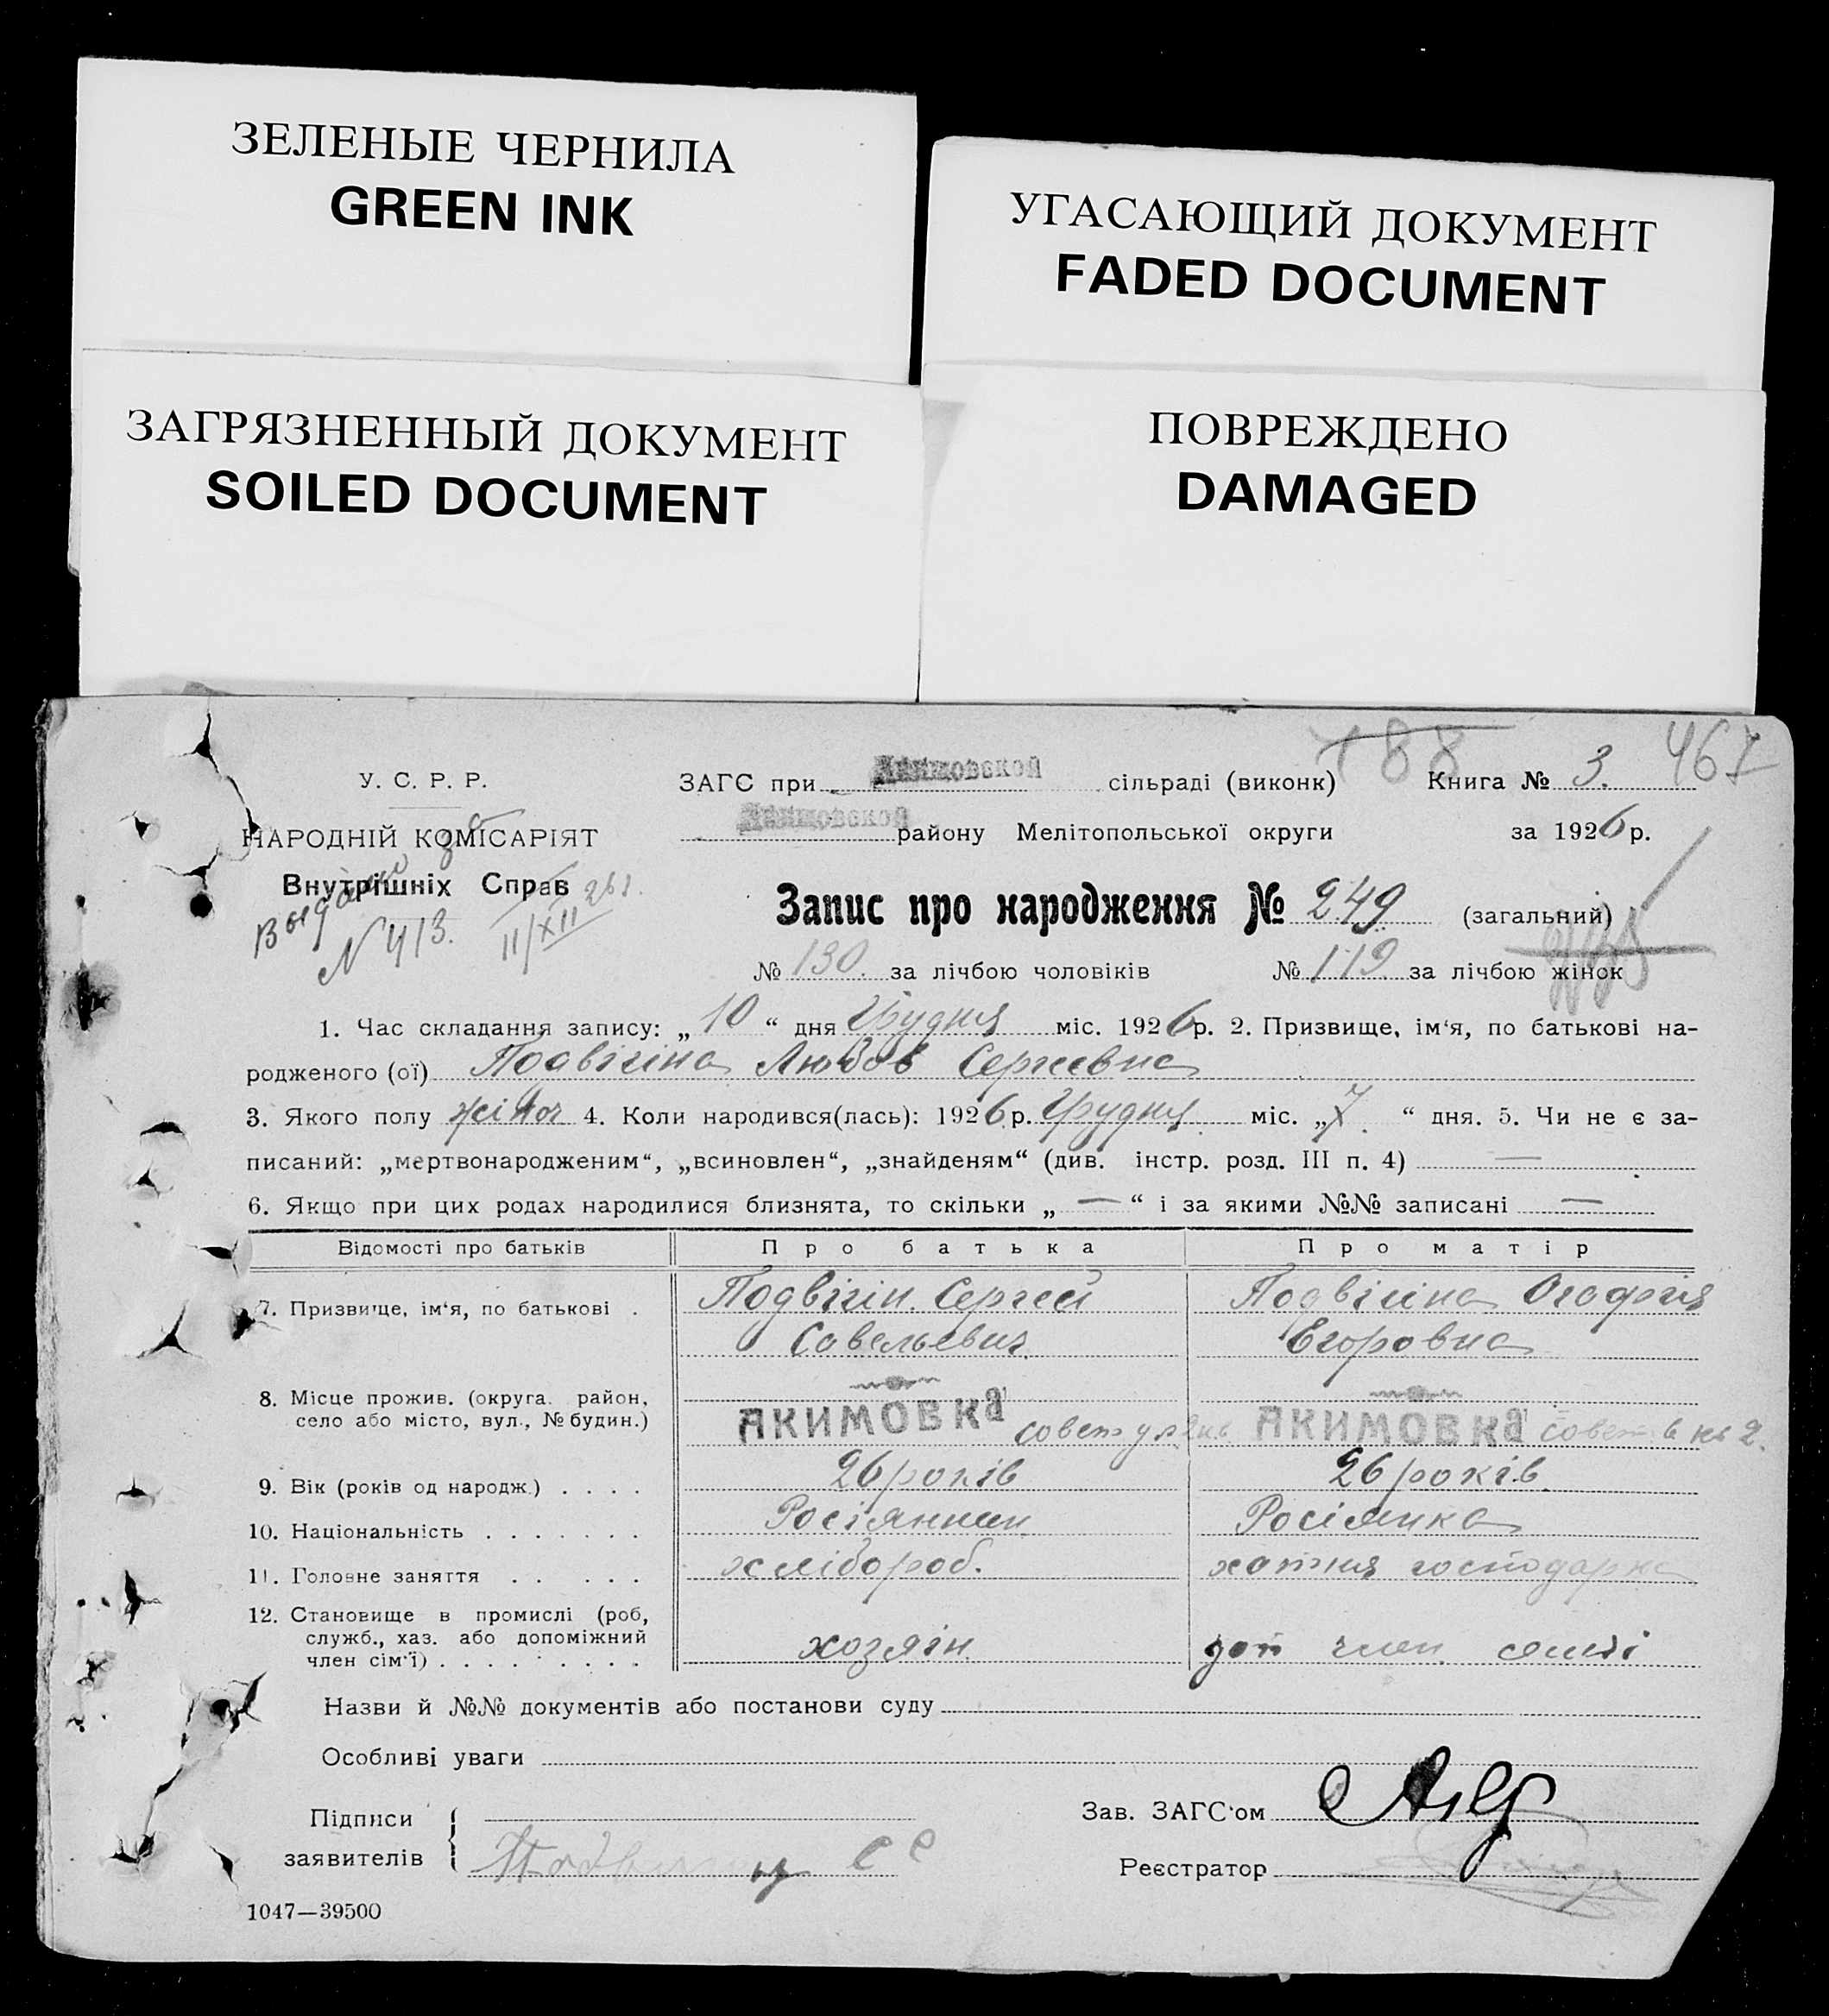 ЗЕЛЕНЫЕ ЧЕРНИЛА
GREEN INK
УГАСАЮЩИЙ ДОКУМЕНТ
FADED DOCUMENT
ЗАГРЯЗНЕННЫЙ ДОКУМЕНТ
SOILED DOCUMENT
ПОВРЕЖДЕНО
DAMAGED
188 467
У. С. Р. Р.
ЗАГС при Акимовской сільраді (виконк) Книга № 3.
НАРОДНІЙ КОМІСАРІЯТ
Акимовской району Мелітопольської округи за 1926 р.
Внутрішніх Справ
N 413. 11/XII 26
Запис про народження № 249 (загальний)
№ 130. за лічбою чоловіків № 119 за лічбою жінок
1. Час складання запису: „10“ дня Грудня міс. 1926 р. 2. Призвище, ім‘я, по батькові на-
родженого (ої) Подвігіна Любов Сергеевна
3. Якого полу жіноч 4. Коли народився(лась): 1926 р. Грудня міс. „7“ дня. 5. Чи не є за-
писаний: „мертвонародженим“, „всиновлен“, „знайденям“ (див. інстр. розд. III п. 4) —
6. Якщо при цих родах народилися близнята, то скільки „—“ і за якими №№ записані —
Відомості про батьків Про батька Про матір
7. Призвище, ім‘я, по батькові . Подвігін Сергей Подвігіна Огафія
Савельевич Егоровна
8. Місце прожив. (округа. район,
село або місто, вул., № будин.) АКИМОВКА совет АКИМОВКА совет № 2.
9. Вік (років од народж.) . . . . 26 років 26 років.
10. Національність . . . . . . . Росіянин Росіянка
11. Головне заняття . . . . . . хлібороб. хатня господарка
12. Становище в промислі (роб,
служб., хаз. або допоміжний
член сім‘ї) . . . . . . . . . хозяїн. доп член семі
Назви й №№ документів або постанови суду
Особливі уваги
Підписи
заявителів
Зав. ЗАГС‘ом
Реєстратор
1047—39500